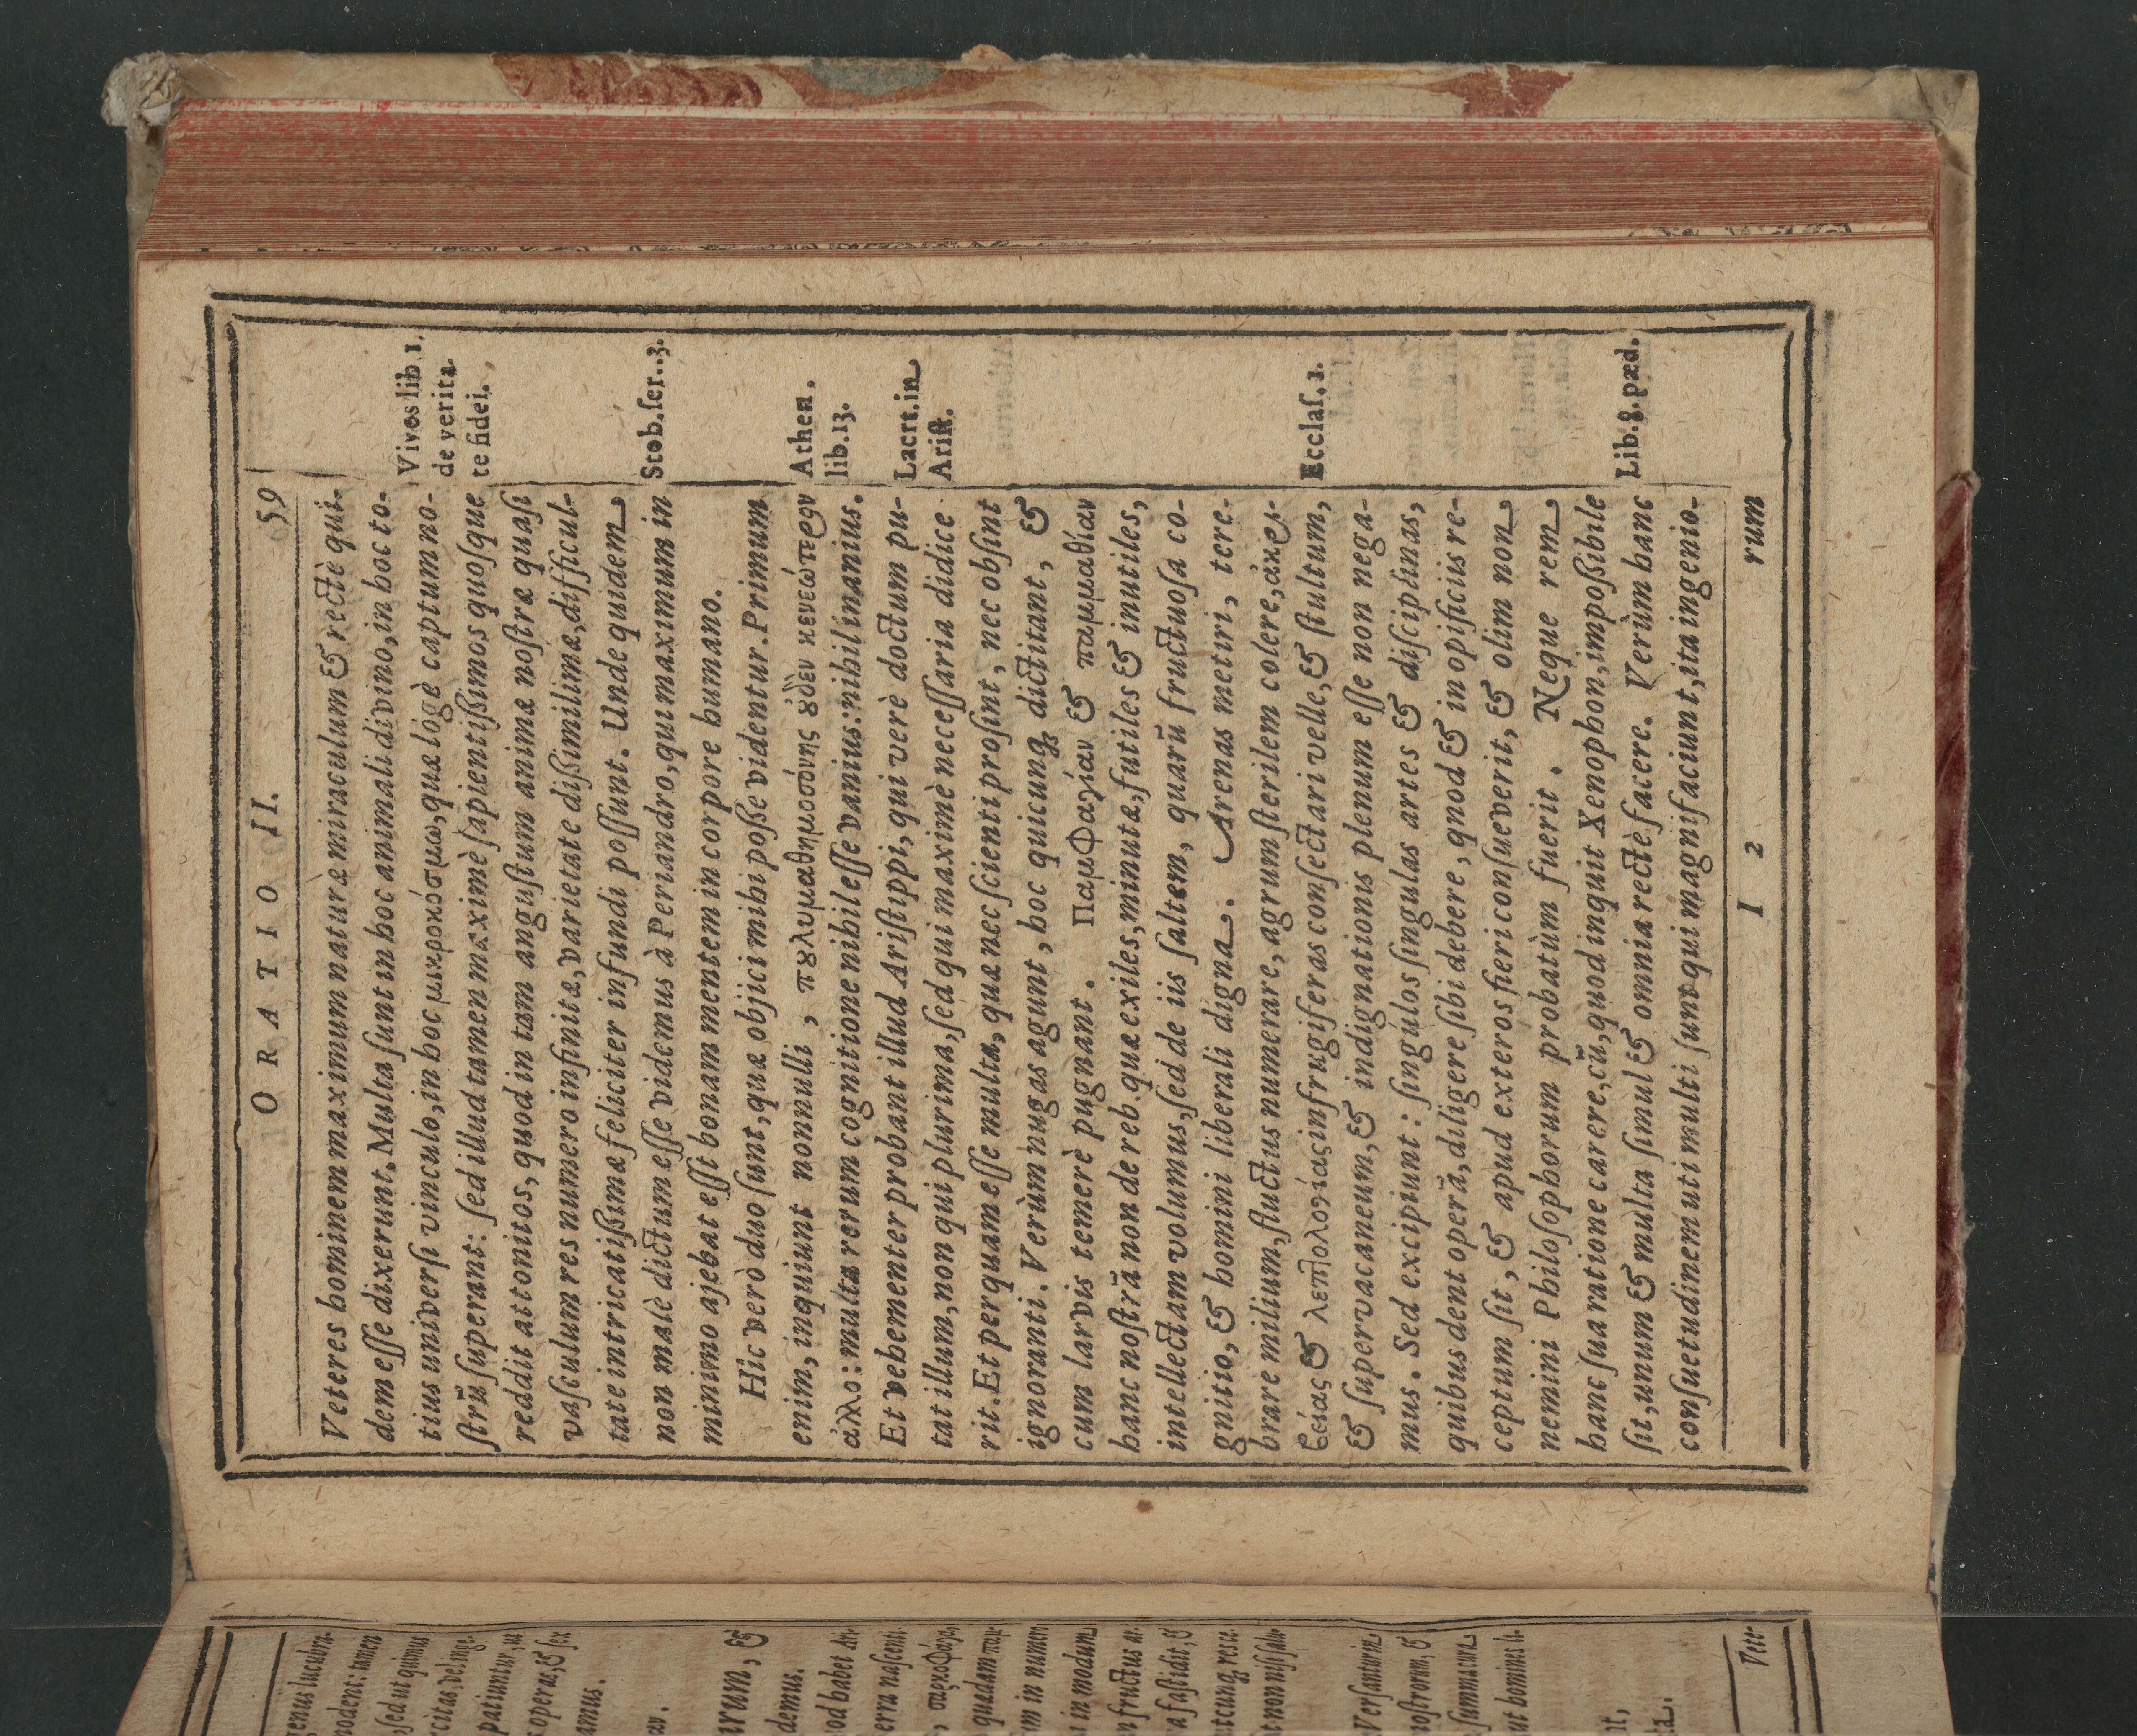 ORATIO II. 59
Veteres hominem maximum naturæ miraculum & rectè qui-
dem eſſe dixerunt. Multa ſunt in hoc animali divino, in hoc to-
tius univerſi vinculo, in hoc μικροκόσμω, quæ lõgè captum no-
ſtrũ ſuperant: ſed illud tamen maximè ſapientißimos quoſque
reddit attonitos, quod in tam anguſtum animæ noſtræ quaſi
vaſculum res numero infinitæ, varietate dißimilimæ, difficul-
tate intricatißimæ feliciter infundi poſſunt. Unde quidem
non malè dictum eſſe videmus à Periandro, qui maximum in
minimo ajebat eſſe bonam mentem in corpore humano.
Hîc verò duo ſunt, quæ objici mihi poße videntur. Primum
enim, inquiunt nonnulli, πȣλυμαθημοσύνης ȣ̓δὲν κενεώτερον
ἀλλο: multa rerum cognitione nihil eſſe vanius: nihil inanius.
Et vehementer probant illud Ariſtippi, qui verè doctum pu-
tat illum, non qui plurima, ſed qui maximè neceſſaria didice
rit. Et perquam eſſe multa, quæ nec ſcienti proſint, nec obſint
ignoranti. Verùm nugas agunt, hoc quicunq; dictitant, &
cum larvis temerè pugnant. Παμφαγίαν & παμμαθίαν
hanc noſtrã non de reb. quæ exiles, minutæ, futiles & inutiles,
intellectam volumus, ſed de iis ſaltem, quarũ fructuoſa co-
gnitio, & homini liberali digna. Arenas metiri, tere-
brare milium, fluctus numerare, agrum ſterilem colere, ἀκρι-
ϐείας & λεπλολογίας infrugiferas conſectari velle, & ſtultum,
& ſupervacaneum, & indignationis plenum eſſe non nega-
mus. Sed excipiunt: ſingulos ſingulas artes & diſciplinas,
quibus dent operã, diligere ſibi debere, quod & in opificiis re-
ceptum ſit, & apud exteros fieri conſueverit, & olim non
nemini Philoſophorum probatùm fuerit. Neque rem
hanc ſua ratione carere, cũ, quod inquit Xenophon, impoßibile
ſit, unum & multa ſimul & omnia rectè facere. Verùm hanc
conſuetudinem uti multi ſunt qui magnifaciunt, ita ingenio-
I 2 rum
Vives lib. 1.
de verita
te fidei.
Stob. ſer.. 3.
Athen.
lib. 13.
Laert. in
Ariſt.
Eccleſ. 1.
Lib. 8. pæd.
nodent: tamen
ſed ut quimus
patiuntur, ut
operas, & ſex
amus.
arum, &
demus.
quadam παμ-
im in numer
in modum
n fructus ar-
a faſtidit, &
Verſantur in
noſtrorum, &
ſumma cura
ut homines li-
Vete-